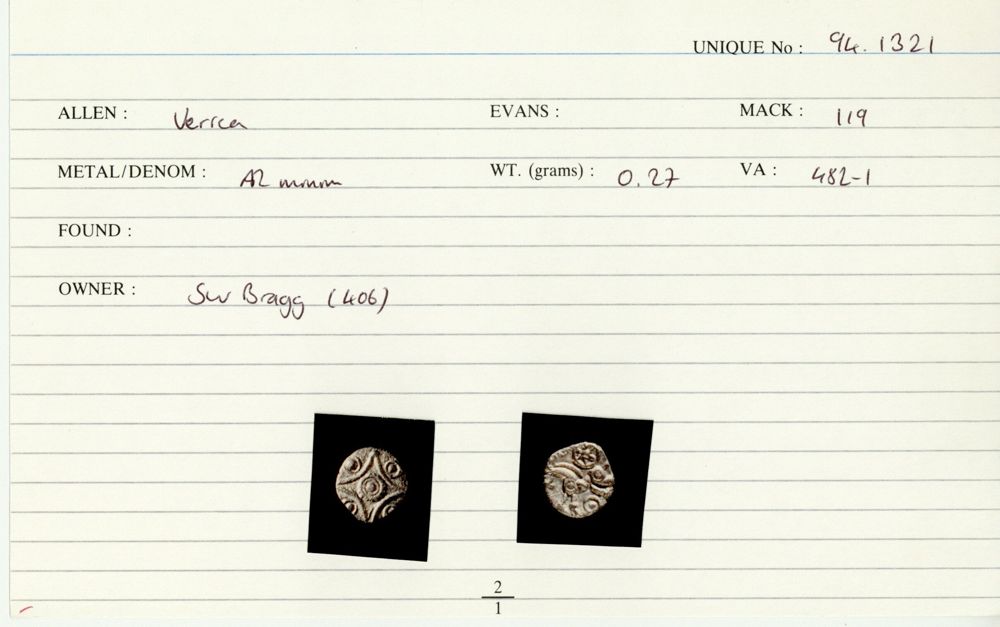 UNIQUE No : 94.1321
ALLEN : Verica EVANS : MACK : 119
METAL/DENOM : AR minim WT. (grams) : 0.27 VA : 482-1
FOUND :
OWNER : SW Bragg (406)
2
1